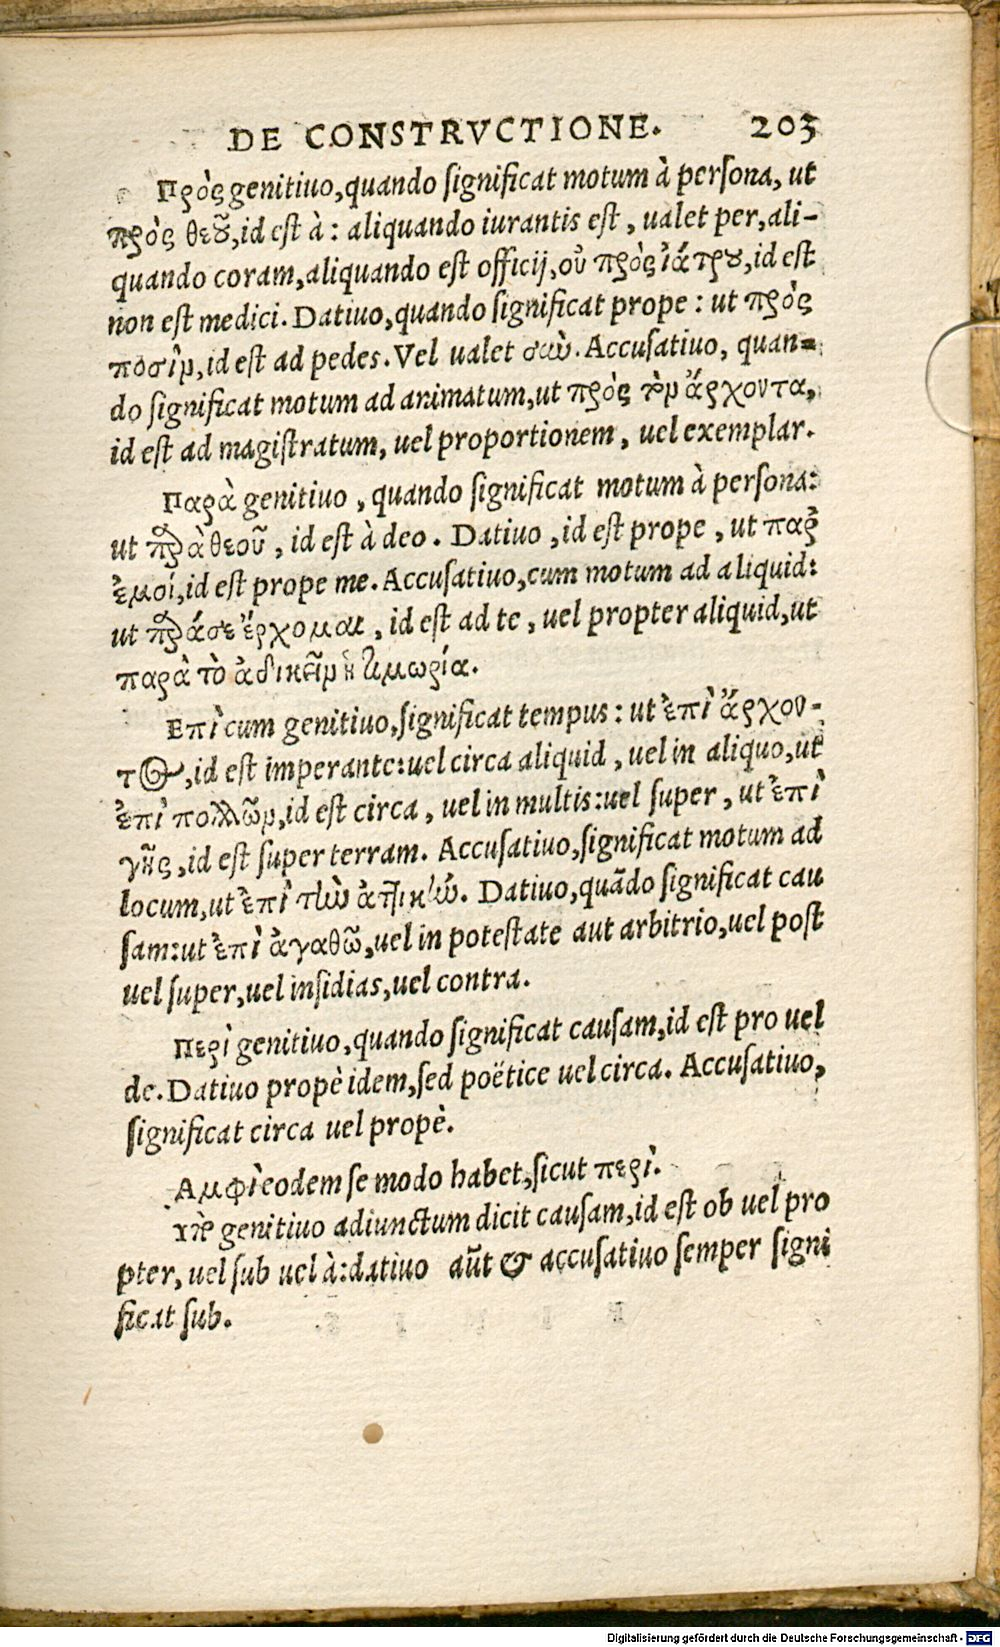 DE CONSTRVCTIONE. 203
Πρὸς genitiuo, quando ſignificat motum à perſona, ut
πρὸς θεȣ͂, id eſt à : aliquando iurantis eſt, ualet per, ali-
quando coram, aliquando eſt officij, οὐ πρὸς ἰάτρȣ, id eſt
non eſt medici. Datiuo, quando ſignificat prope : ut πρὸς
ποσὶν, id eſt ad pedes. Vel ualet σαὺ. Accuſatiuo, quan-
do ſignificat motum ad animatum, ut πρὸς τὸν ἄρχοντα,
id eſt ad magiſtratum, uel proportionem, uel exemplar.
Παρὰ genitiuo, quando ſignificat motum à perſona:
ut παρὰ θεοῦ, id eſt à deo. Datiuo, id eſt prope, ut παρ'
ἐμοί, id eſt prope me. Accuſatiuo, cum motum ad aliquid:
ut παρά σε ἔρχομαι, id eſt ad te, uel propter aliquid, ut
παρὰ τὸ ἀδικεῖν ἡ τιμωρία.
Επὶ cum genitiuo, ſignificat tempus : ut ἐπὶ ἄρχον-
τος, id eſt imperante: uel circa aliquid, uel in aliquo, ut
ἐπὶ πολλῶν, id eſt circa, uel in multis: uel ſuper, ut ἐπὶ
γῆς, id eſt ſuper terram. Accuſatiuo, ſignificat motum ad
locum, ut ἐπὶ τὴν ἀττικήν. Datiuo, quãdo ſignificat cau
ſam: ut ἐπὶ ἀγαθῶ, uel in poteſtate aut arbitrio, uel poſt
uel ſuper, uel inſidias, uel contra.
Περὶ genitiuo, quando ſignificat cauſam, id eſt pro uel
de. Datiuo propè idem, ſed poëtice uel circa. Accuſatiuo,
ſignificat circa uel propè.
Αμφὶ eodem ſe modo habet, ſicut περὶ.
Υπὸ genitiuo adiunctum dicit cauſam, id eſt ob uel pro
pter, uel ſub uel à: datiuo aũt & accuſatiuo ſemper ſigni
ficat ſub.
Digitalisierung gefördert durch die Deutsche Forschungsgemeinschaft - DFG